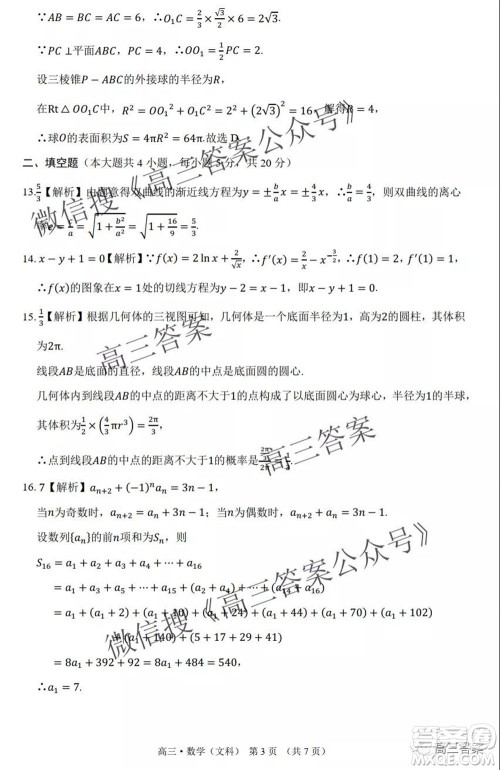 ∵AB = BC = AC = 6，∴O₁C = 2/3 × √3/2 × 6 = 2√3.
∵PC⊥平面ABC，PC = 4，∴OO₁ = 1/2 PC = 2.
设三棱锥P − ABC的外接球的半径为R，
在Rt△OO₁C中，R² = OO₁² + O₁C² = 2² + (2√3)² = 16，解得R = 4，
∴球O的表面积为S = 4πR² = 64π.故选D.
二、填空题（本大题共4小题，每小题5分，共20分）
13. 5/3【解析】由题意得双曲线的渐近线方程为y = ± b/a x = ± 4/3 x，∴ b/a = 4/3，则双曲线的离心
e = c/a = √(1 + b²/a²) = √(1 + 16/9) = 5/3.
14. x − y + 1 = 0【解析】∵f(x) = 2 ln x + 2/√x，∴f′(x) = 2/x − x^(−3/2)，∴f′(1) = 1，f(1) = 2，
∴f(x)的图象在x = 1处的切线方程为y − 2 = x − 1，即x − y + 1 = 0.
15. 1/3【解析】根据几何体的三视图可知，几何体是一个底面半径为1，高为2的圆柱，其体积
为2π.
线段AB是底面的直径，线段AB的中点是底面圆的圆心.
几何体内到线段AB的中点的距离不大于1的点构成了以底面圆心为球心，半径为1的半球，
其体积为 1/2 × (4/3 πr³) = 2π/3，
∴点到线段AB的中点的距离不大于1的概率是
16. 7【解析】aₙ₊₂ + (−1)ⁿaₙ = 3n − 1，
当n为奇数时，aₙ₊₂ = aₙ + 3n − 1；当n为偶数时，aₙ₊₂ + aₙ = 3n − 1.
设数列{aₙ}的前n项和为Sₙ，则
S₁₆ = a₁ + a₂ + a₃ + a₄ + ⋯ + a₁₆
= a₁ + a₃ + a₅ + ⋯ + a₁₅ + (a₂ + a₄) + ⋯ + (a₁₄ + a₁₆)
= a₁ + (a₁ + 2) + (a₁ + 10) + (a₁ + 24) + (a₁ + 44) + (a₁ + 70) + (a₁ + 102)
+ (a₁ + 140) + (5 + 17 + 29 + 41)
= 8a₁ + 392 + 92 = 8a₁ + 484 = 540，
∴a₁ = 7.
高三·数学（文科） 第3页 （共7页）
微信搜《高三答案公众号》
高三答案
高三答案
微信搜《高三答案公众号》
高三答案